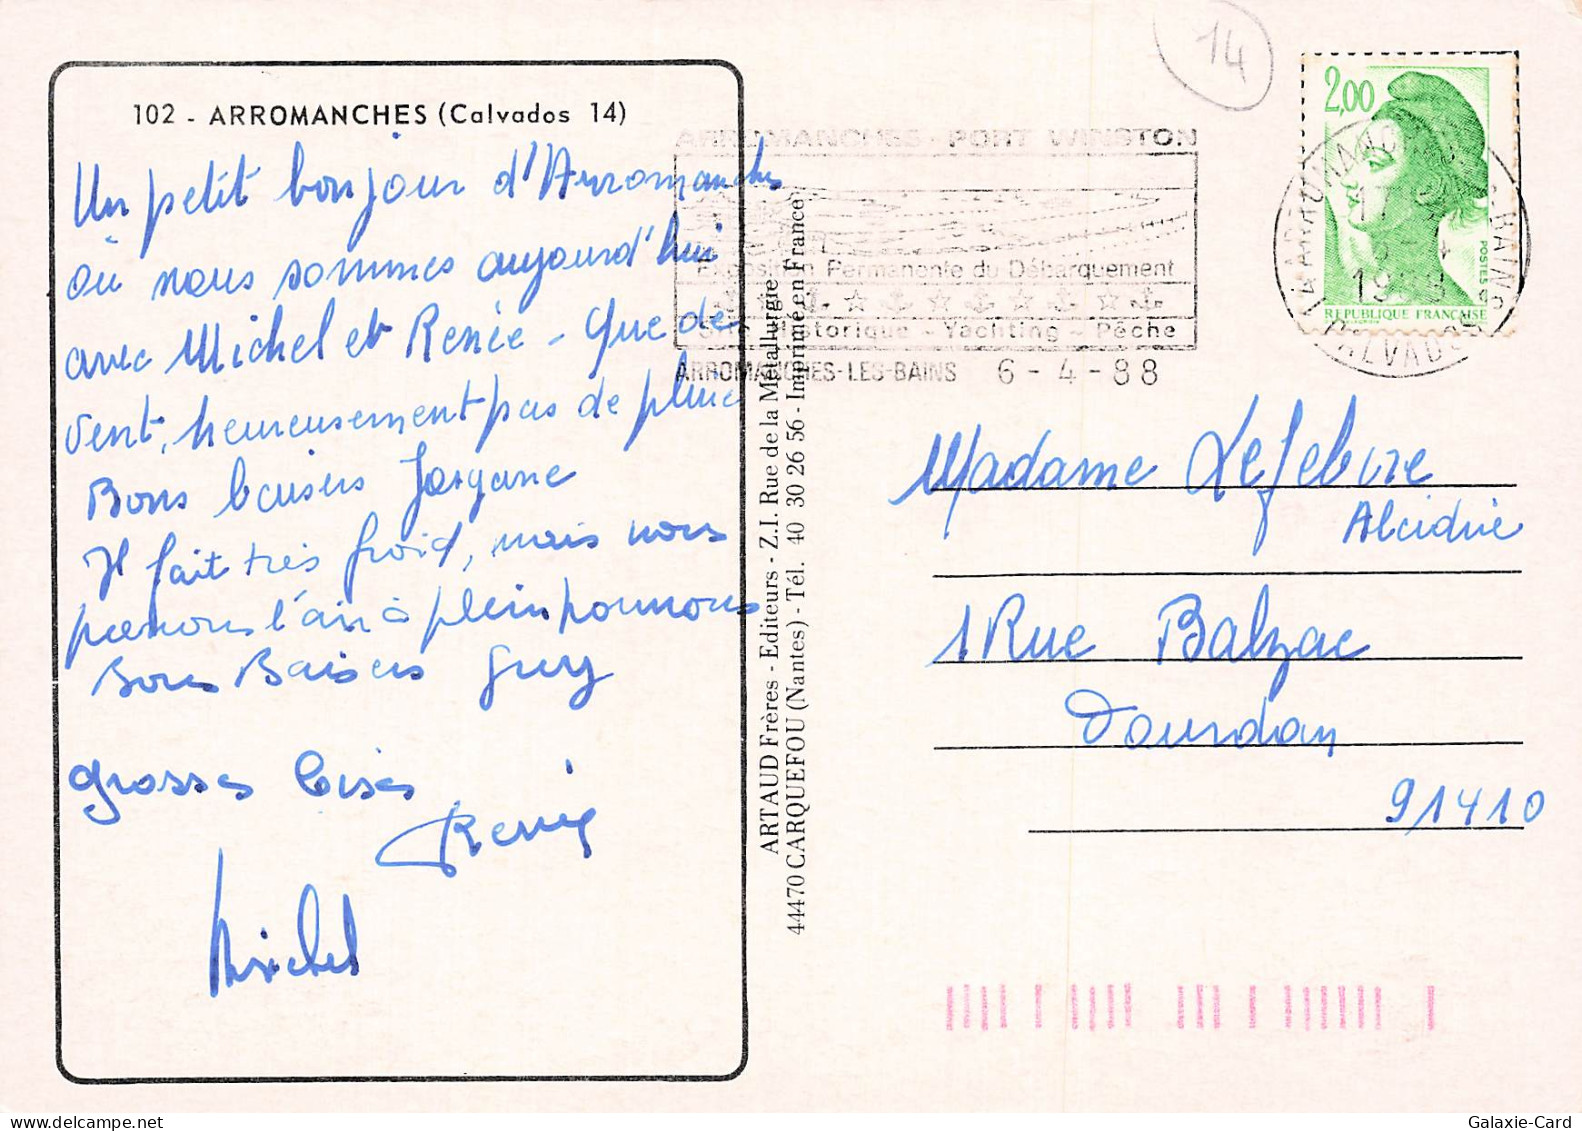 102 - ARROMANCHES (Calvados 14)
Un petit bonjour d'Arromanches
où nous sommes aujourd'hui
avec Michel et Renée - Que de
vent, heureusement pas de pluie
Bons baisers
Il fait très froid, mais nous
prenons l'air à plein poumons
Bons Baisers Guy
grosses bises
Renée
Michel
ARTAUD Frères - Editeurs - Z.I. Rue de la Métallurgie
44470 CARQUEFOU (Nantes) - Tél. 40 30 26 56 - Imprimé en France
14
ARROMANCHES - PORT WINSTON
Exposition Permanente du Débarquement
Site Historique - Yachting - Pêche
ARROMANCHES-LES-BAINS 6 - 4 - 88
2,00
POSTES
REPUBLIQUE FRANÇAISE
CALVADOS
Madame Lefebvre
Alcidrie
1 Rue Balzac
Dourdan
91410
Galaxie-Card